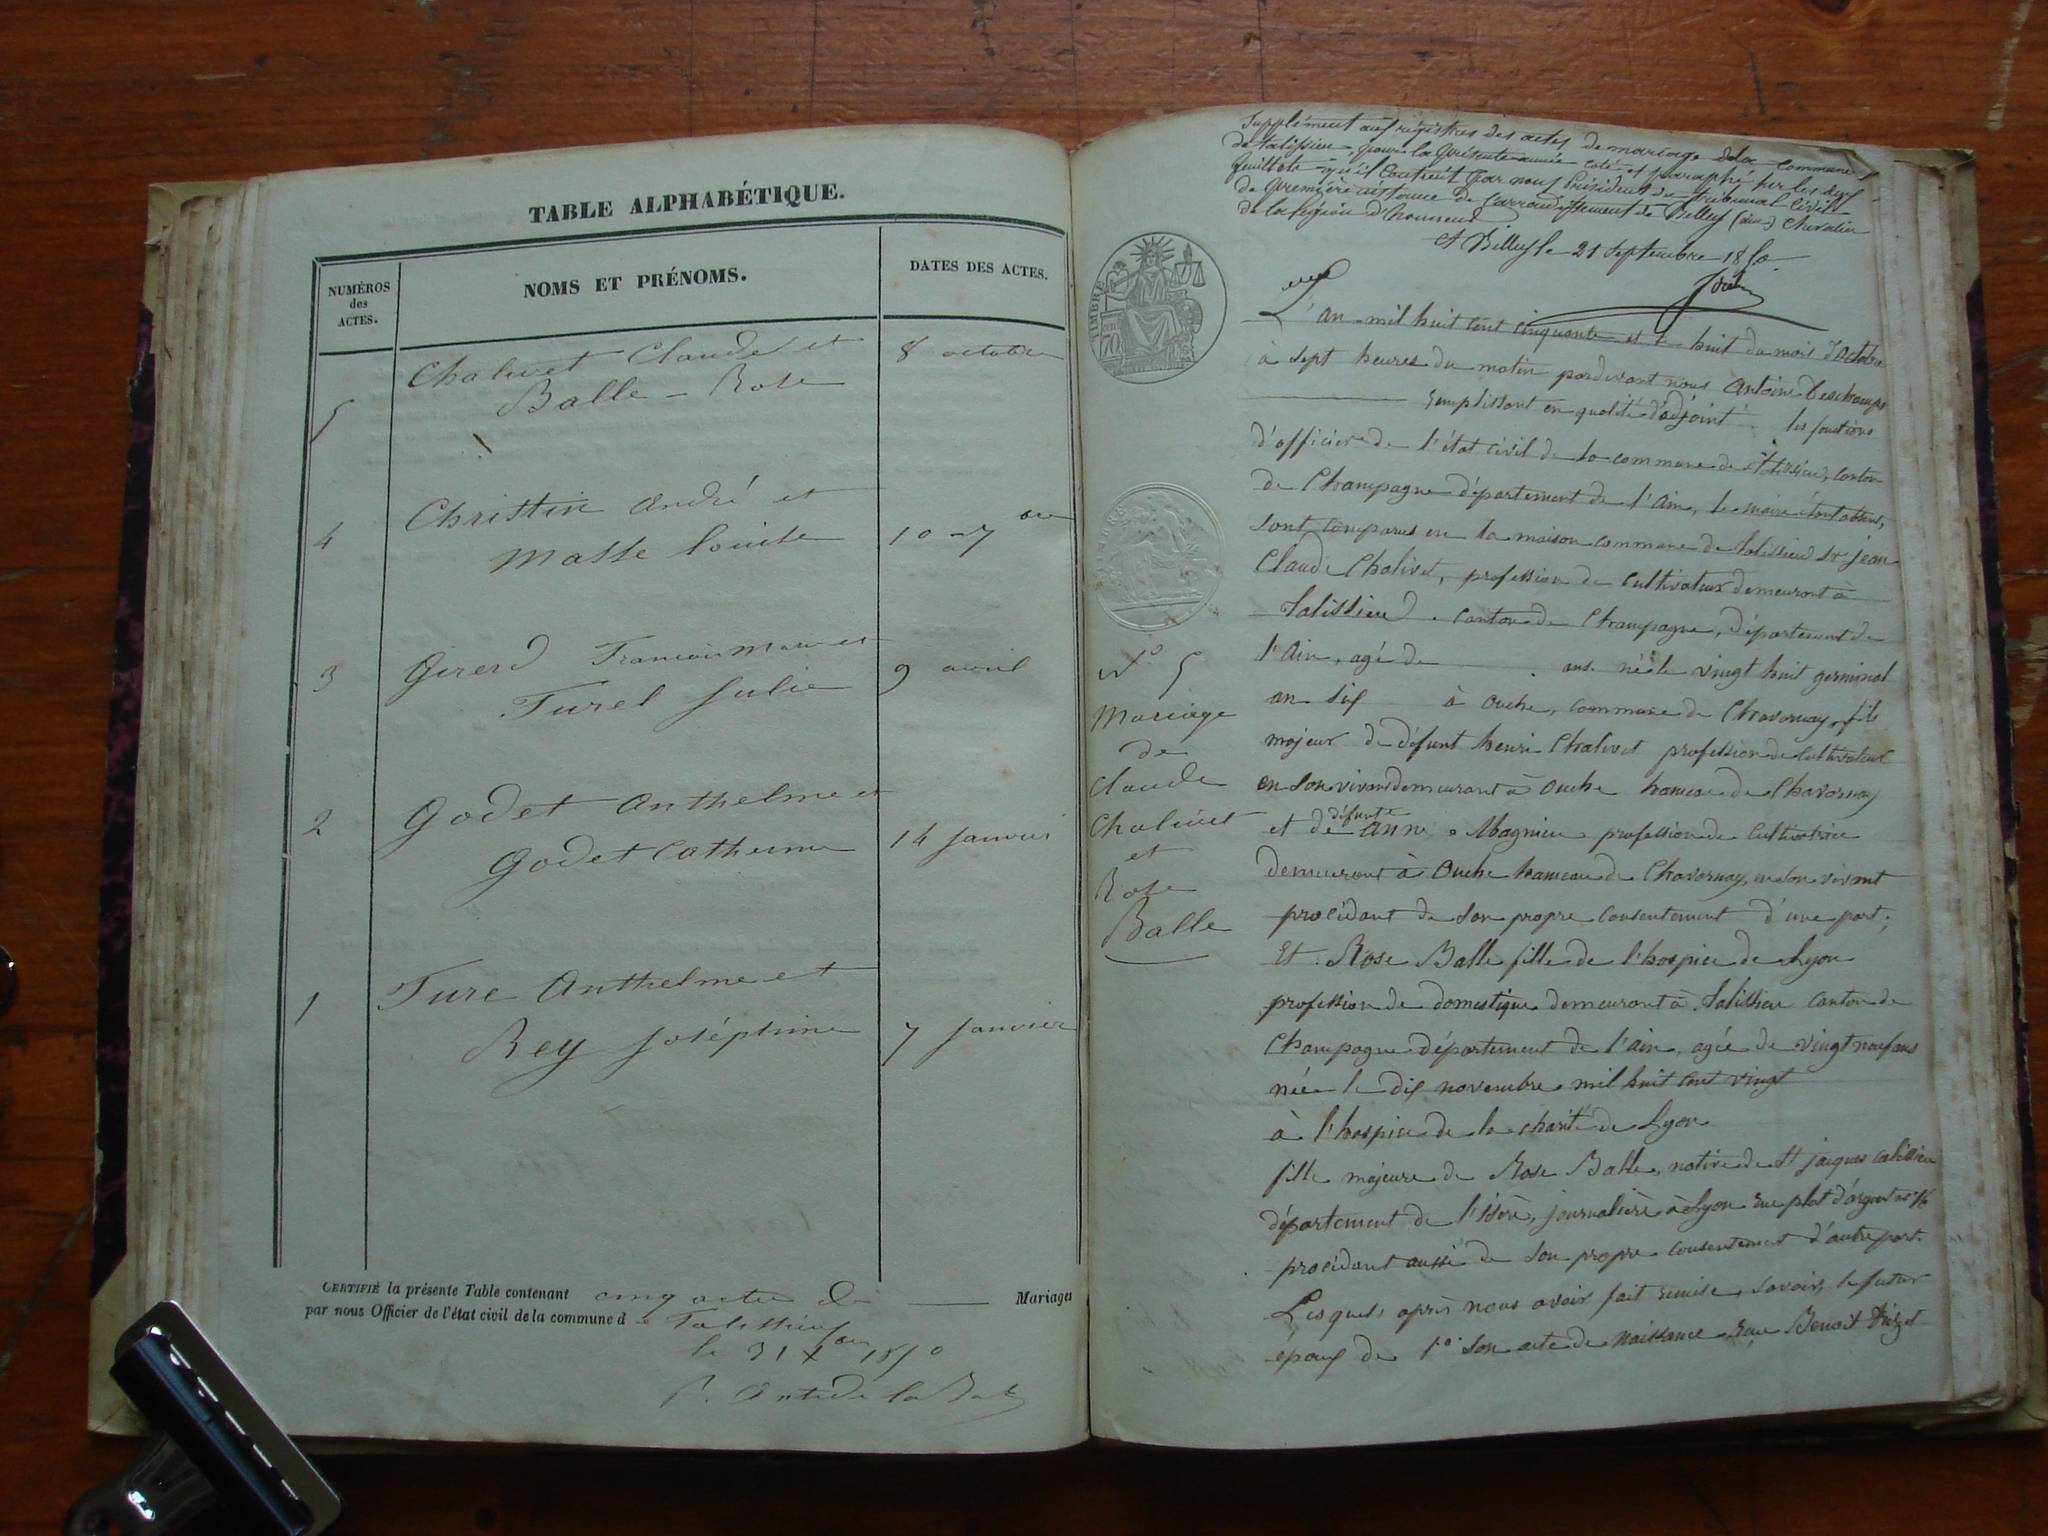 TABLE ALPHABÉTIQUE.
NUMÉROS
des
ACTES.
NOMS ET PRÉNOMS.
DATES DES ACTES.
5
Chalivet Claude et
Balle - Rose
8 octobre
4
Christin André et
Masse Louise
10 - 7bre
3
Girerd François Marie et
Turel Julie
9 avril
2
Godet Anthelme et
Godet Catherine
14 Janvier
1
Ture Anthelme et
Rey Joséphine
7 Janvier
CERTIFIÉ la présente Table contenant cinq actes de Mariages
par nous Officier de l'état civil de la commune d e Talissieu
le 31 Xbre 1850
Supplément aux régistres des actes de mariage de la commune
de talissieu, pour la présente année coté et paraphé sur les deux
feuillets qu'il contient par nous Président du tribunal Civil
de première instance de l'arrondissement de Belley (ain) Chevalier
de la légion d'honneur
A Belley le 21 Septembre 1850.
TIMBRE
70
L'an mil huit cent cinquante et le huit du mois d'Octobre
à sept heures du matin pardevant nous Antoine Deschamps
remplissant en qualité d'adjoint les fonctions
d'officier de l'état civil de la commune de Talissieu, canton
de Champagne département de l'Ain, le maire étant absent,
sont comparus en la maison commune de talissieu Sr jean
Claude Chalivet, profession de cultivateur demeurant à
Talissieu canton de Champagne, département de
l'Ain, agé de ans. né le vingt huit germinal
an six à Ouche, commune de Chavornay, fils
majeur de défunt henri Chalivet profession de cultivateur
en son vivant demeurant à Ouche hameau de Chavornay
et de défunte anne Magnieu profession de cultivatrice
demeurant à Ouche hameau de Chavornay, en son vivant
procédant de son propre consentement d'une part;
Et Rose Balle fille de l'hospice de Lyon
profession de domestique demeurant à Talissieu canton de
Champagne département de l'ain, agée de vingt neuf ans
née le dix novembre mil huit cent vingt
à l'hospice de la charité de Lyon
fille majeure de Rose Balle, native de St jacques
département de l'Isère, journalière à Lyon rue plat d'argent n° 16
procédant aussi de son propre consentement d'autre part.
Lesquels après nous avoir fait remise, savoir, le futur
epoux de 1° son acte de naissance
N° 5
Mariage
de
Claude
Chalivet
et
Rose
Balle